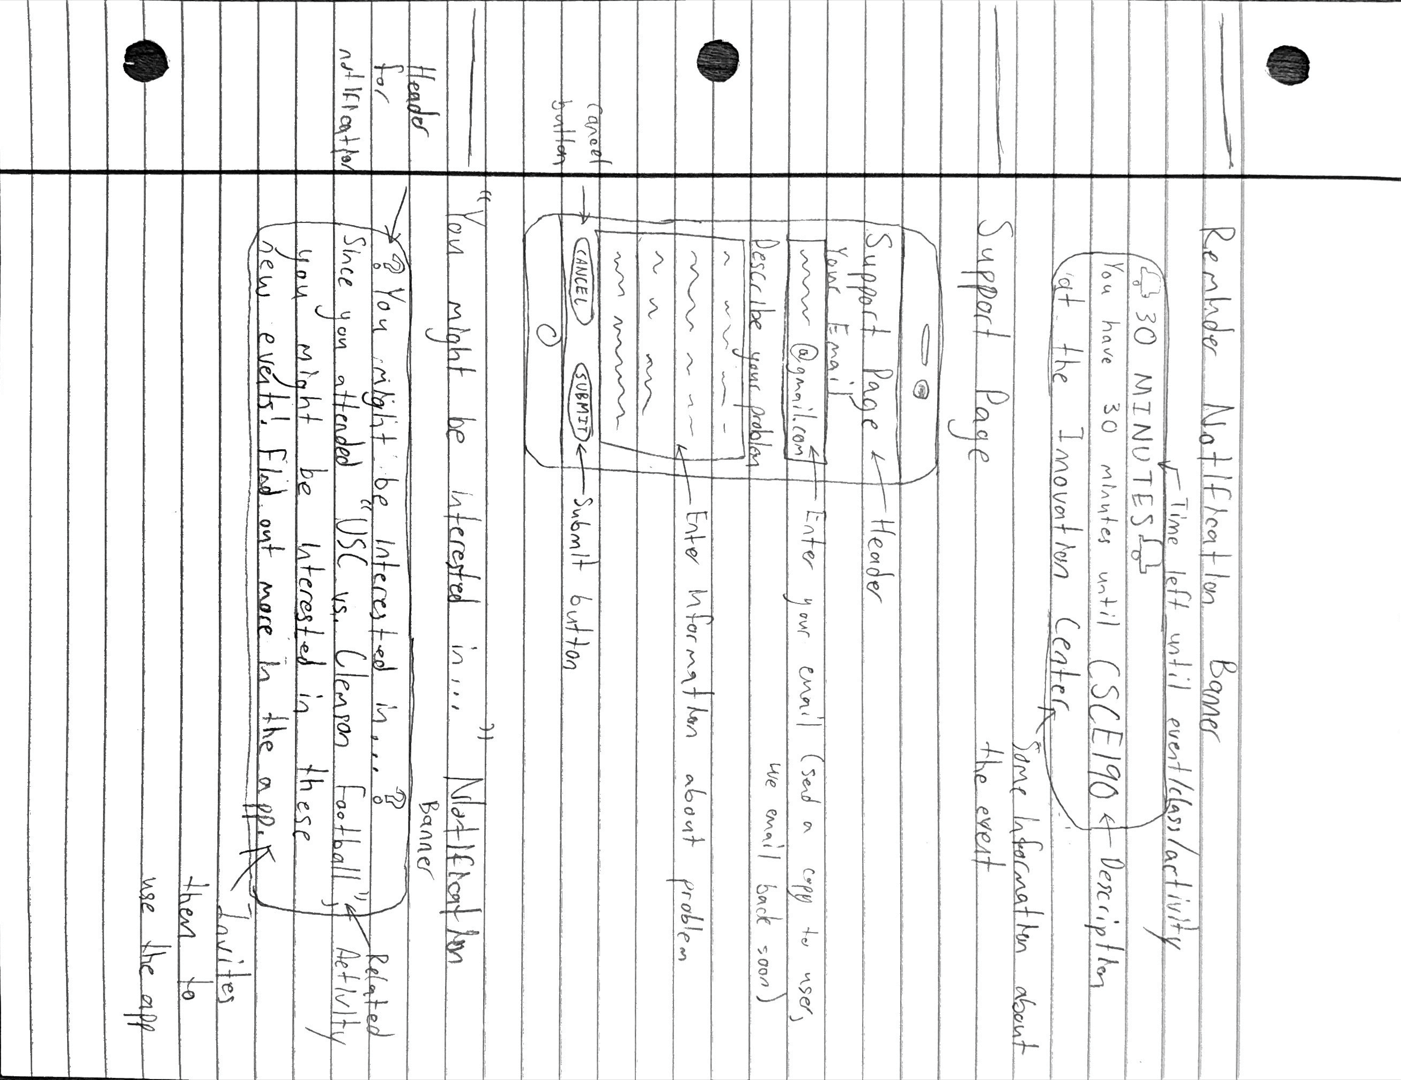 Reminder Notification Banner
Time left until event/class/activity
30 MINUTES
You have 30 minutes until CSCE190
Description
at the Inovation Center
Some Information about
the event
Support Page
Support Page
Header
Your Email
~~~ @gmail.com
Enter your email (send a copy to users,
we email back soon)
Describe your problem
Enter Information about problem
CANCEL SUBMIT
Cancel
button
Submit button
"You might be interested in..." Notification
Banner
Header
for
notification
? You might be interested in... ?
Since you attended "USC vs. Clemson Football",
Related
Activity
you might be interested in these
new events! Find out more in the app.
Invites
them to
use the app